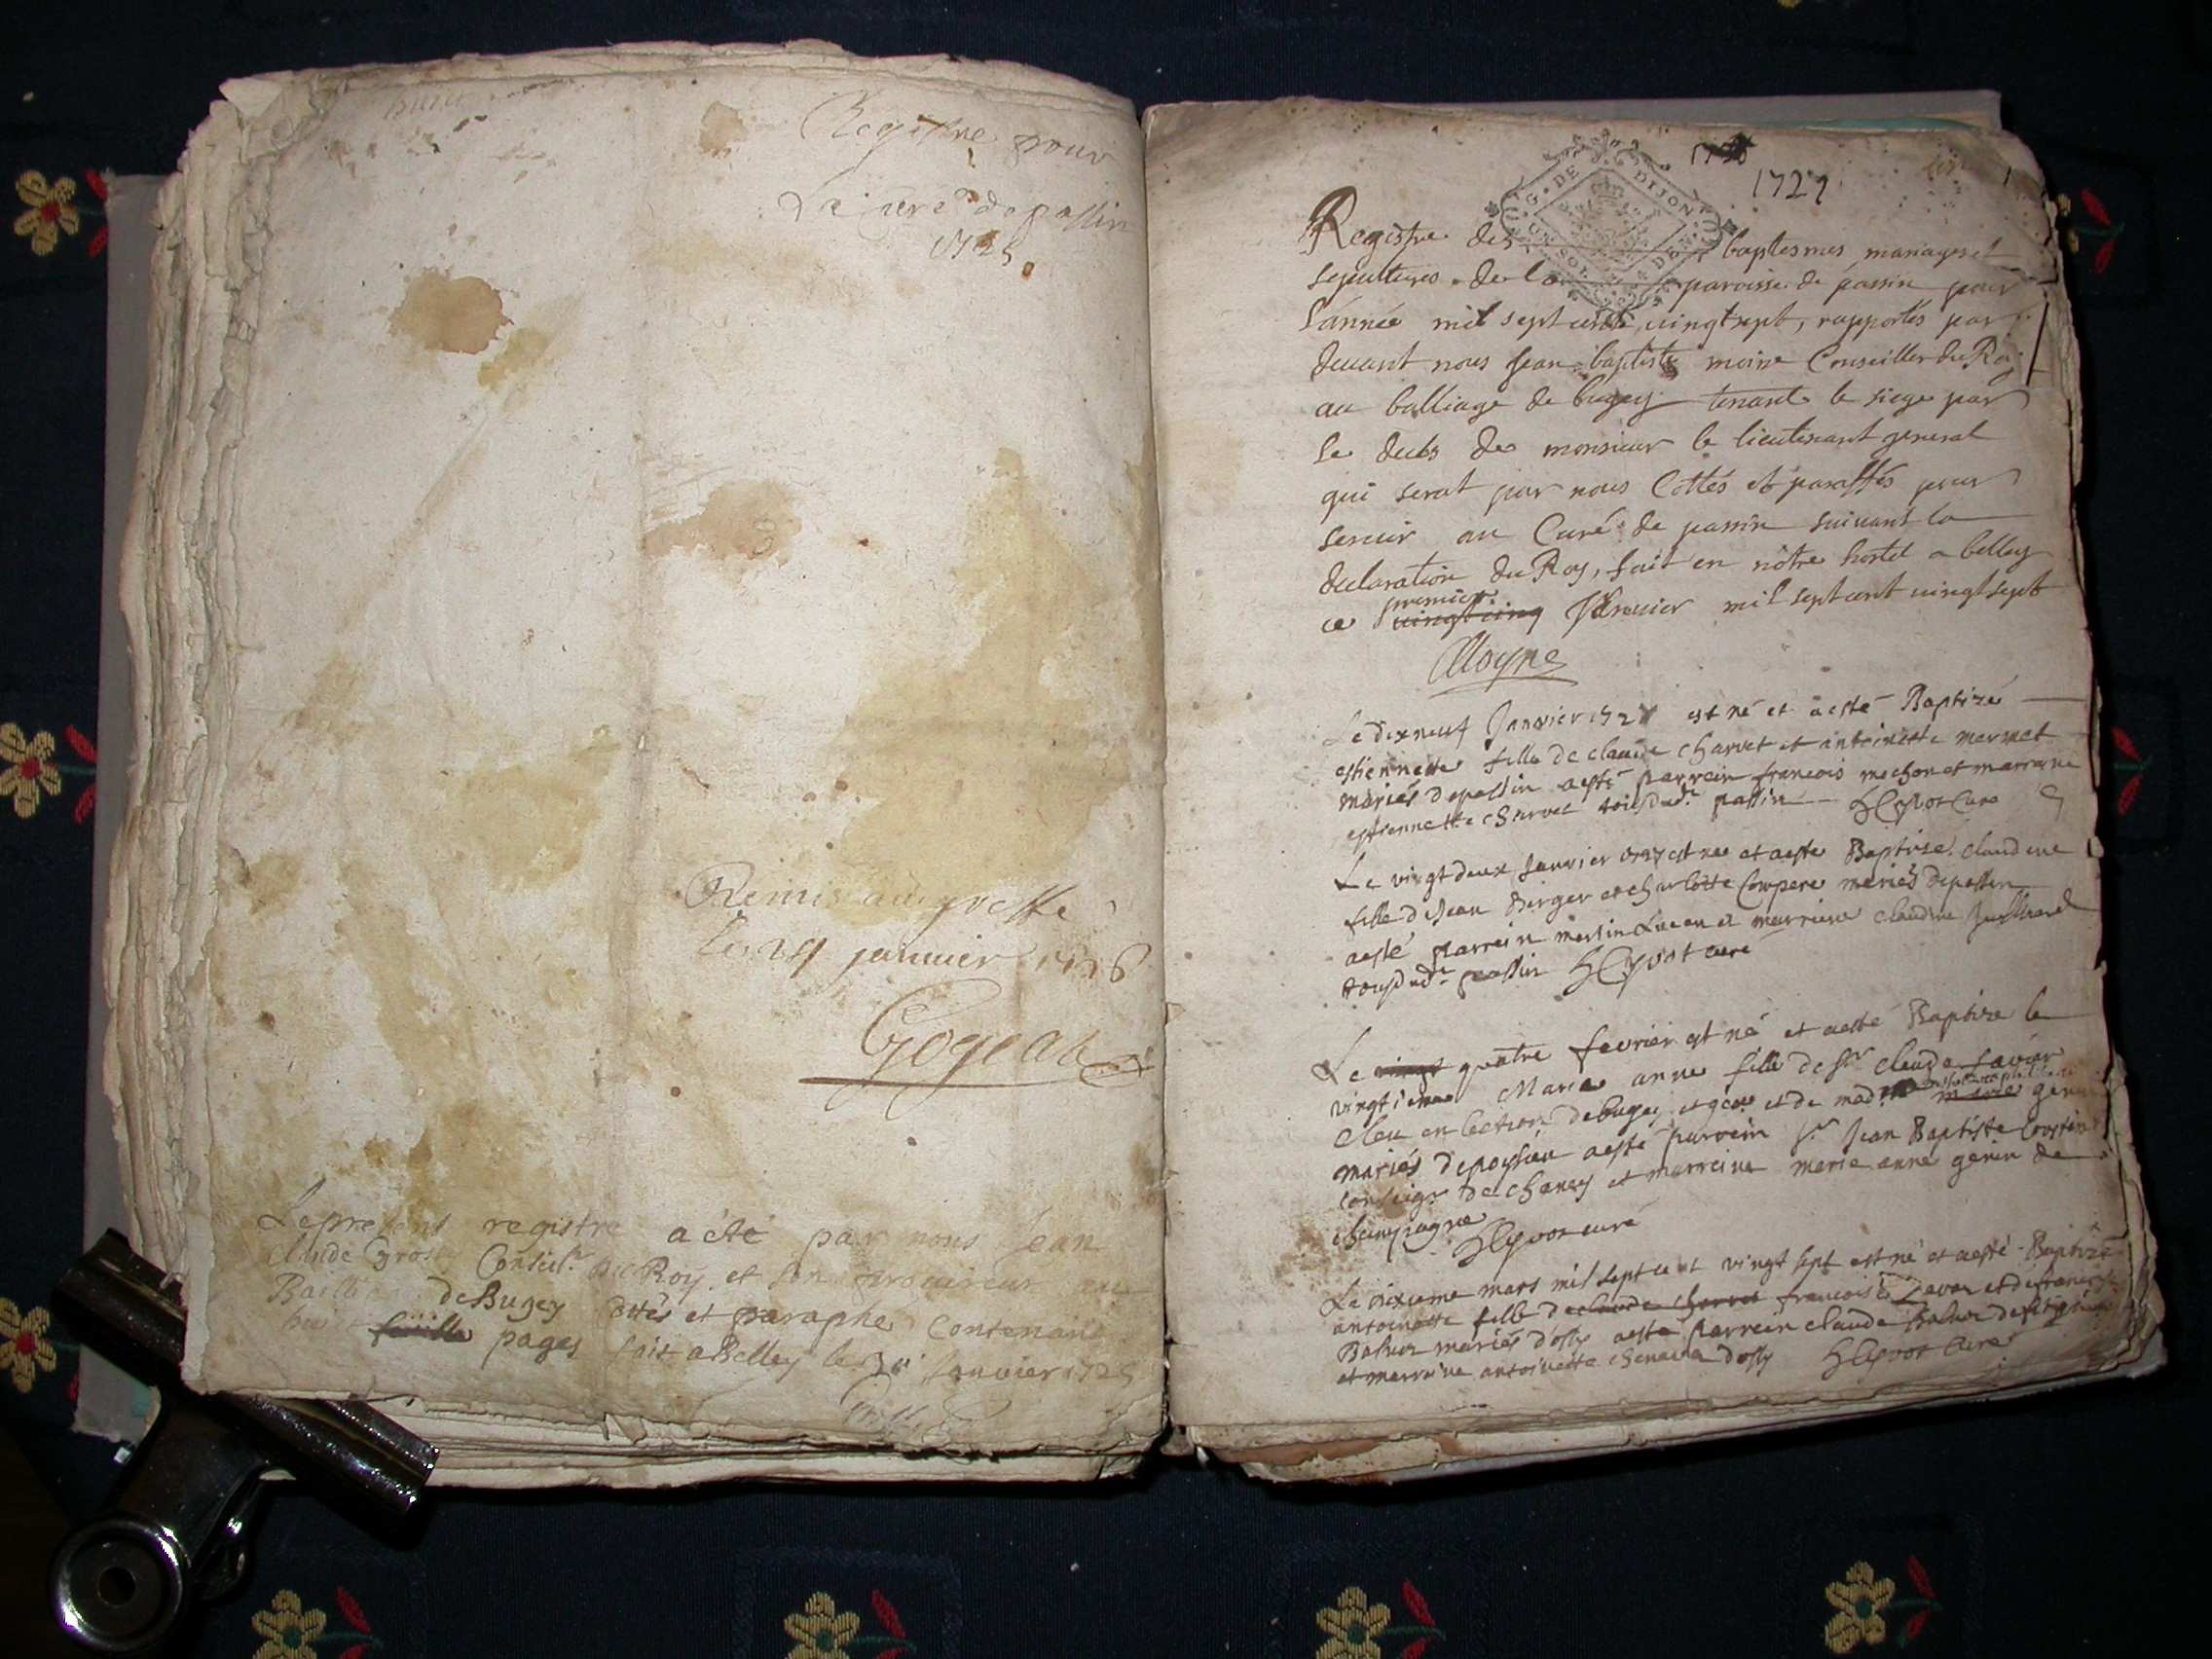 huict
Registre pour
Le curé de passin
1725
Remis au greffe
le 24 janvier 1726
Gogeat
Le present registre a été par nous Jean
Claude Gros Conseil.r du Roy et son procureur au
Bailliage de Bugey cottés et paraphé contenant
huict feuille pages fait a Belley le janvier 1725
1727
G. DE DIJON
Registre des baptesmes mariages et
sepultures de la paroisse de passin pour
l'année mil sept cents vingt sept, rapportés par
devant nous Jean baptiste moine Conseiller du Roy
au balliage de bugey tenant le siege par
le deces de monsieur le lieutenant general
qui serat par nous Cottés et paraffés pour
servir au Curé de passin suivant la
declaration du Roy, fait en nôtre hostel a belley
premier
ce vingt cinq Janvier mil sept cent vingt sept
Moyne
Le dixneuf Janvier 1727 est né et a esté Baptizé
estiennette fille de claude charvet et antoinette mermet
mariés de passin a esté parrein francois mochon et marreine
estiennette charvet tous dud.t passin curé
Le vingt deux Janvier 1727 est née et a esté Baptisé claudine
fille de Jean Berger et charlotte Compere mariés de passin
a esté parrein martin et marreine claudine
tous dud.t passin curé
Le vingt quatre fevrier est né et a esté Baptize le
vingtieme Marie anne fille de Sr claude favier
eleu en lection de bugey et gex et de mad marie genin
mariés de poysieu a esté parrein Sr Jean Baptiste
conseigr de chaney et marreine marie anne genin de
champagne
curé
Le dixieme mars mil sept cent vingt sept est né et a esté Baptizé
antoinette fille de claude charvet francois et de
mariés d'ossy a esté parrein claude
et marreine antoinette d'ossy curé